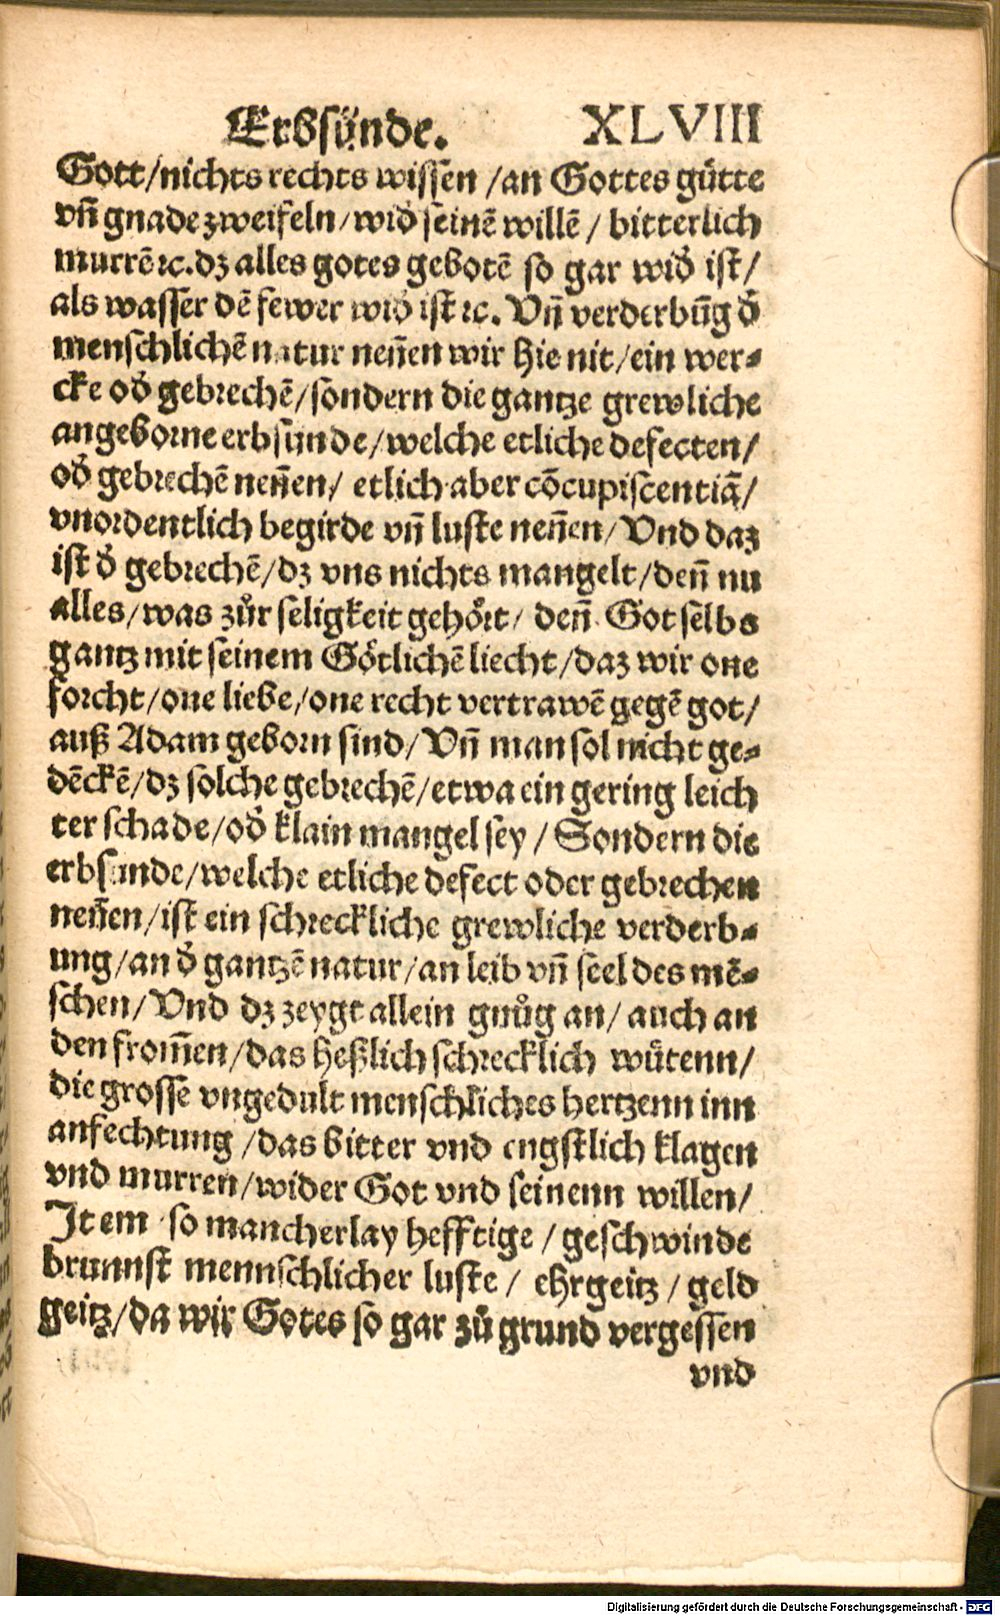 Erbsünde. XLVIII
Gott/nichts rechts wissen /an Gottes gůtte
vñ gnade zweifeln/wid̕ seinē willē / bitterlich
murrē ꝛc. dz alles gotes gebotē so gar wid̕ ist/
als wasser dē fewer wid̕ ist ꝛc. Vñ verderbūg d̕
menschlichē natur neñen wir hie nit/ein wer⸗
cke od̕ gebrechē/sondern die gantze grewliche
angeborne erbsunde/welche etliche defecten/
od̕ gebrechē neñen/ etlich aber cōcupiscentiā/
vnordentlich begirde vñ luste neñen/Vnd daz
ist d̕ gebrechē/dz vns nichts mangelt/deñ nu
alles/was zůr seligkeit gehört/ deñ Got selbs
gantz mit seinem Götlichē liecht/daz wir one
forcht/one liebe/one recht vertrawē gegē got/
auß Adam geborn sind/Vñ man sol nicht ge⸗
dēckē/dz solche gebrechē/etwa ein gering leich
ter schade/od̕ klain mangel sey / Sondern die
erbsunde/welche etliche defect oder gebrechen
neñen/ist ein schreckliche grewliche verderb⸗
ung/an d̕ gantzē natur/an leib vñ seel des mē⸗
schen/Vnd dz zeygt allein gnůg an/auch an
den from̄en/das heßlich schrecklich wůtenn/
die grosse vngedult menschliches hertzenn inn
anfechtung /das bitter vnd engstlich klagen
vnd murren/wider Got vnd seinenn willen/
Item so mancherlay hefftige / geschwinde
brunnst mennschlicher luste / ehrgeitz / geld
geitz/da wir Gotes so gar zů grund vergessen
vnd
Digitalisierung gefördert durch die Deutsche Forschungsgemeinschaft - DFG